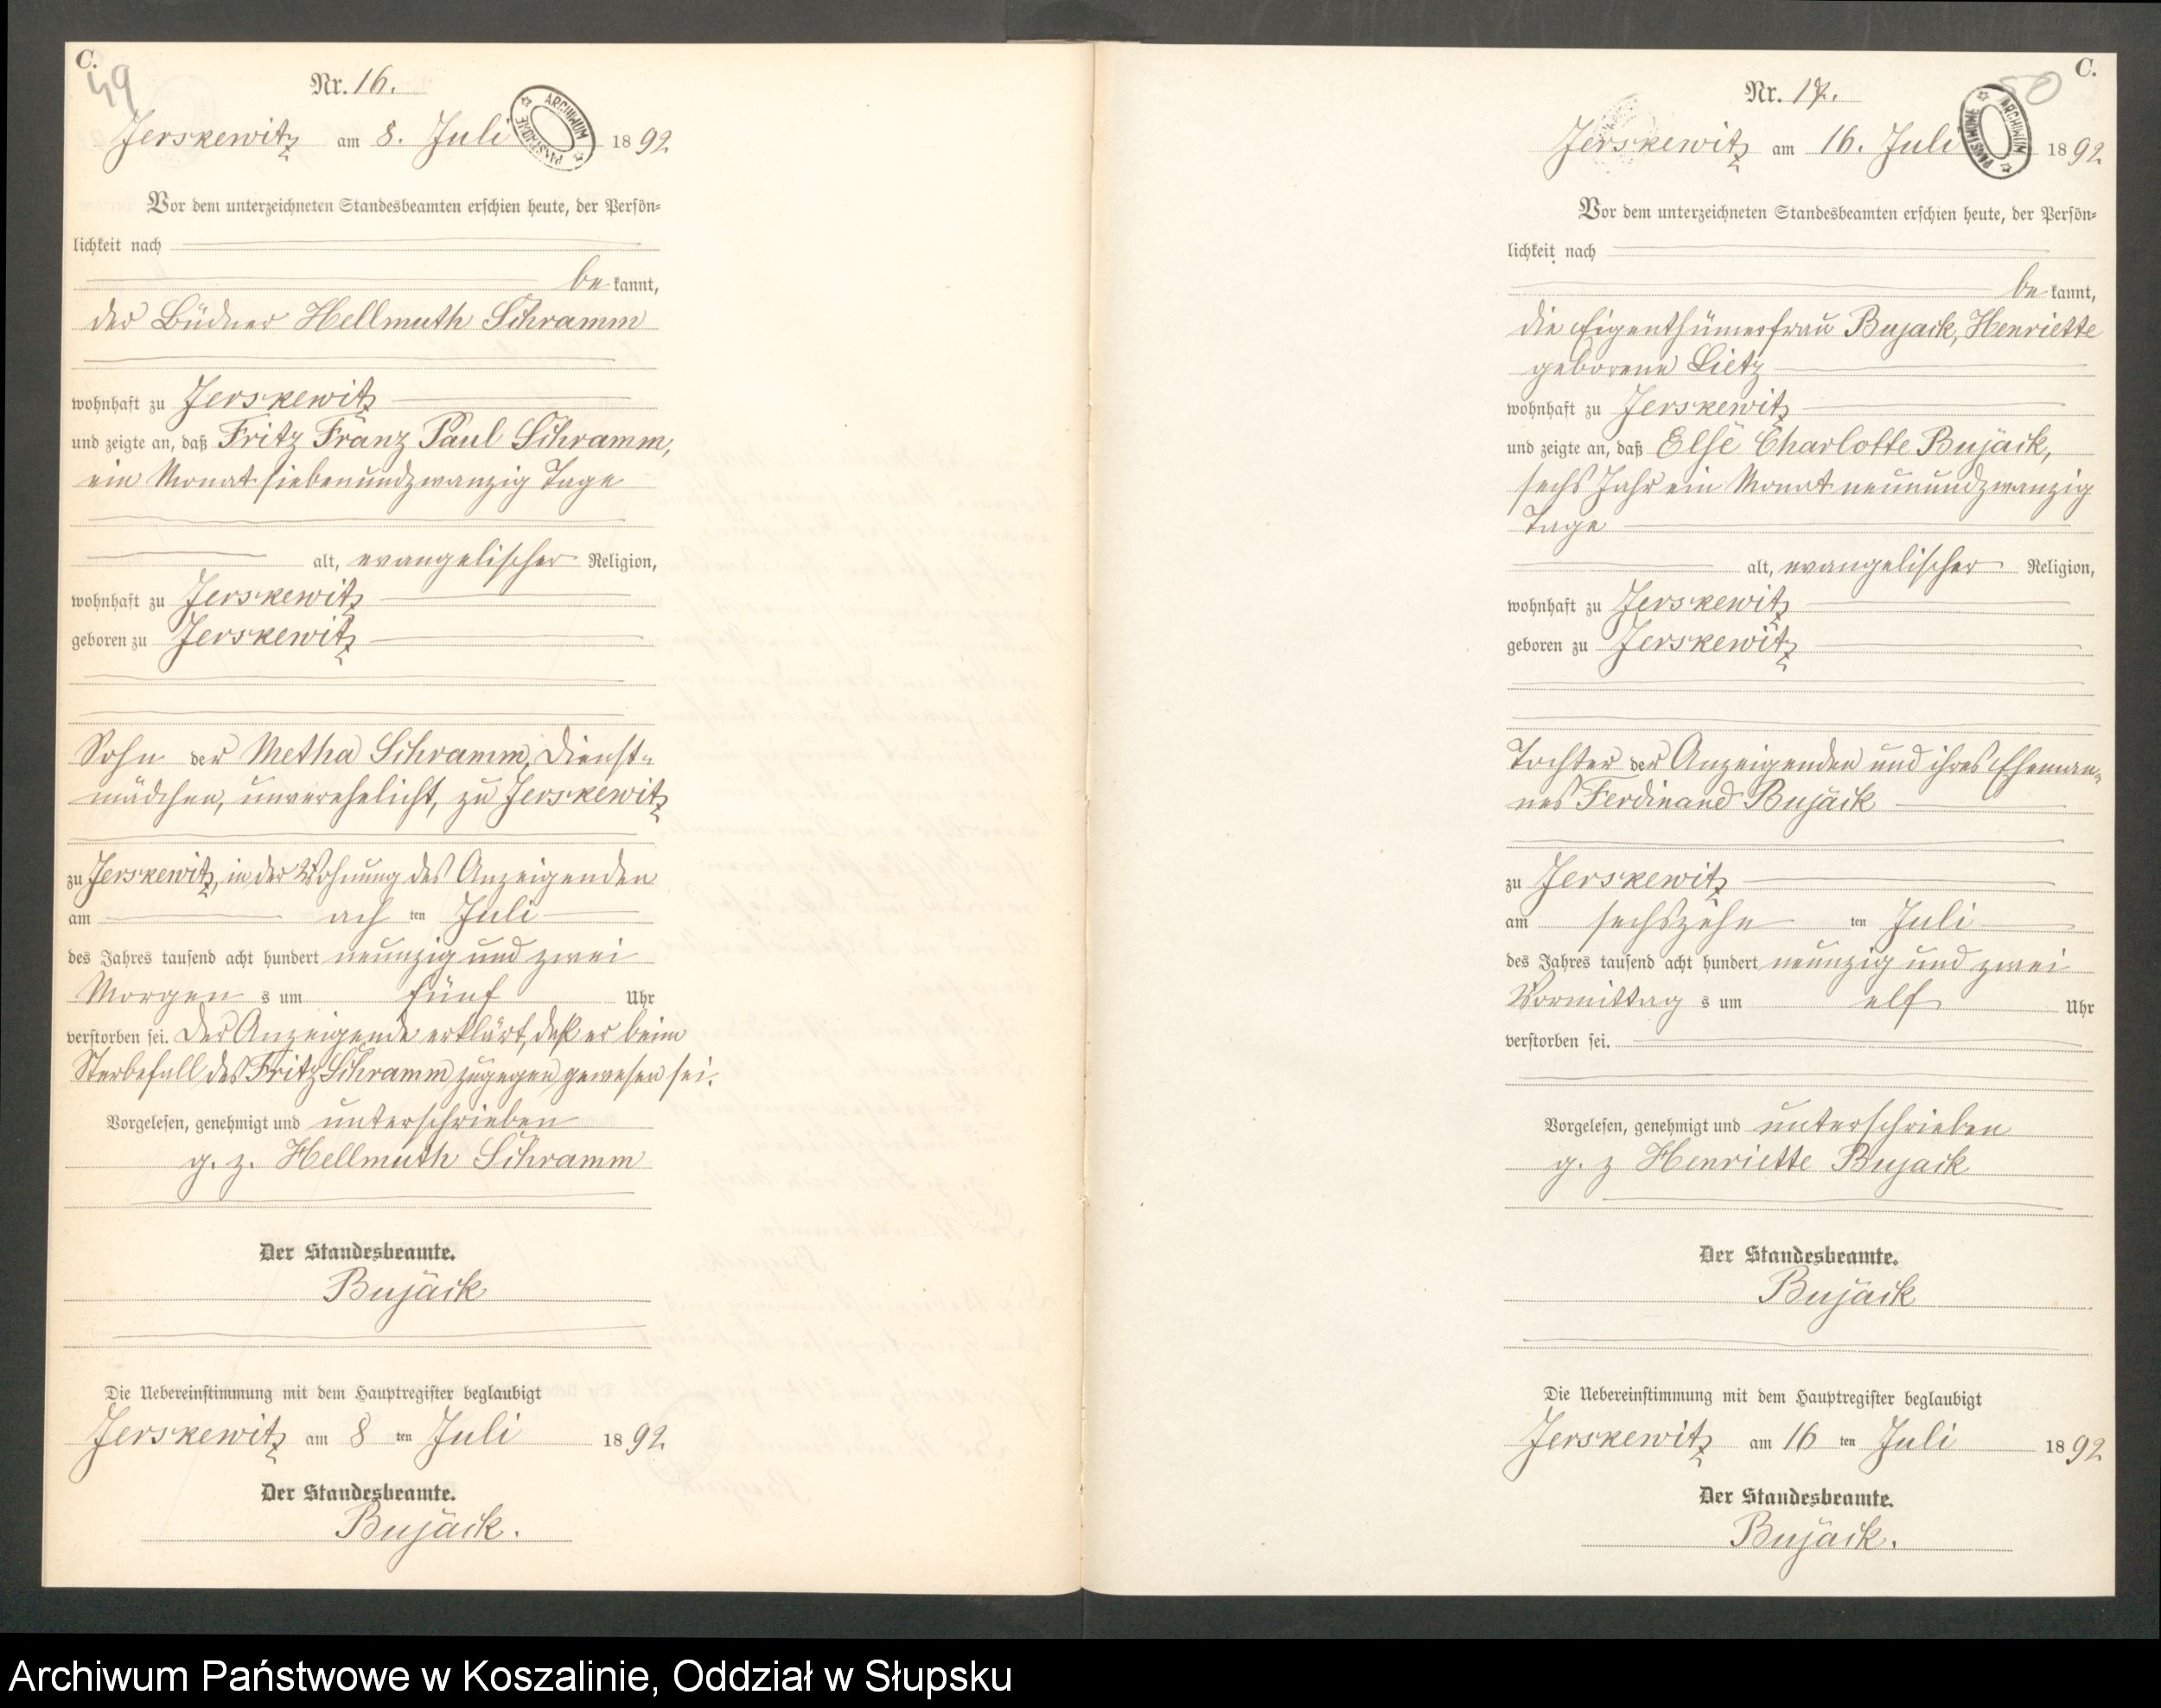 C.
49
Nr. 16.
Jerskewitz am 8. Juli 1892
ARCHIWUM PAŃSTWOWE
Vor dem unterzeichneten Standesbeamten erschien heute, der Persön=
lichkeit nach
be kannt,
der Büdner Hellmuth Schramm
wohnhaft zu Jerskewitz
und zeigte an, daß Fritz Franz Paul Schramm,
ein Monat siebenundzwanzig Tage
alt, evangelischer Religion,
wohnhaft zu Jerskewitz
geboren zu Jerskewitz
Sohn der Metha Schramm, Dienst=
mädchen, unverehelicht, zu Jerskewitz
zu Jerskewitz, in der Wohnung des Anzeigenden
am ach ten Juli
des Jahres tausend acht hundert neunzig und zwei
Morgen s um fünf Uhr
verstorben sei. Der Anzeigende erklärt, daß er beim
Sterbefall des Fritz Schramm zugegen gewesen sei.
Vorgelesen, genehmigt und unterschrieben
g. z. Hellmuth Schramm
Der Standesbeamte.
Bujack
Die Uebereinstimmung mit dem Hauptregister beglaubigt
Jerskewitz am 8 ten Juli 1892
Der Standesbeamte.
Bujack.
C.
50
Nr. 17.
Jerskewitz am 16. Juli 1892
ARCHIWUM PAŃSTWOWE
Vor dem unterzeichneten Standesbeamten erschien heute, der Persön=
lichkeit nach
be kannt,
die Eigenthümerfrau Bujack, Henriette
geborene Lietz
wohnhaft zu Jerskewitz
und zeigte an, daß Else Charlotte Bujack,
sechs Jahr ein Monat neunundzwanzig
Tage
alt, evangelischer Religion,
wohnhaft zu Jerskewitz
geboren zu Jerskewitz
Tochter der Anzeigenden und ihres Eheman=
nes Ferdinand Bujack
zu Jerskewitz
am sechszehn ten Juli
des Jahres tausend acht hundert neunzig und zwei
Vormittag s um elf Uhr
verstorben sei.
Vorgelesen, genehmigt und unterschrieben
g. z Henriette Bujack
Der Standesbeamte.
Bujack
Die Uebereinstimmung mit dem Hauptregister beglaubigt
Jerskewitz am 16 ten Juli 1892
Der Standesbeamte.
Bujack.
Archiwum Państwowe w Koszalinie, Oddział w Słupsku